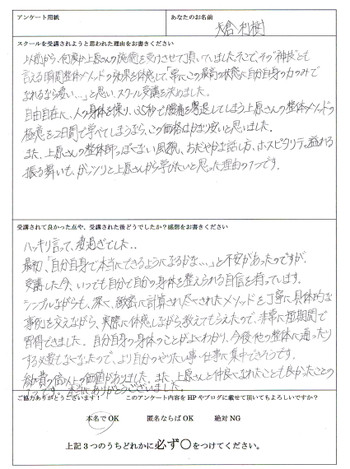 アンケート用紙
あなたのお名前
大倉 利樹
スクールを受講されようと思われた理由をお書きください
以前から何度か上原さんの施術を受けさせて頂いていました。そこで、その"神技"とも
言える瞬間整体メソッドの効果を体感して「常にこの最高の状態に自分自身の力のみで
なれるなら凄い…」と思い、スクール受講を決めました。
自由自在に、人の身体を操り、35秒で腰痛を撃退してしまう上原さんの整体メソッドの
極意を2日間で学べてしまうなら、この価格はかなり安いと思いました。
また、上原さんの整体師っぽくない風貌、おだやかな話し方、ホスピタリティ溢れる
振る舞いも、ガッツリと上原さんから学びたいと思った理由の1つです。
受講されて良かった点や、受講された後どうでしたか?感想をお書きください
ハッキリ言って、最高でした。
最初、「自分自身で本当にできるようになるかな…」と不安があったのですが、
受講した今、いつでも自分で自分の身体を整えられる自信を持っています。
シンプルながらも、深く、緻密に計算され尽くされたメソッドを丁寧に具体的な
事例を交えながら、実際に体感しながら教えてもらえたので、非常に短期間で
習得できました。自分自身の身体のことがよくわかり、今後、他の整体に通ったり
する必要もなくなったので、より自分のやりたい事・仕事に集中できそうです。
価値がありました。また、上原さんと仲良くなれたことも良かったことの
1つです。本当にありがとうございました。
ご協力ありがとうございます! このアンケート内容をHPやブログに載せて頂いてもよろしいですか?
本名でOK 匿名ならばOK 絶対NG
上記3つのうちどれかに必ず○をつけてください。